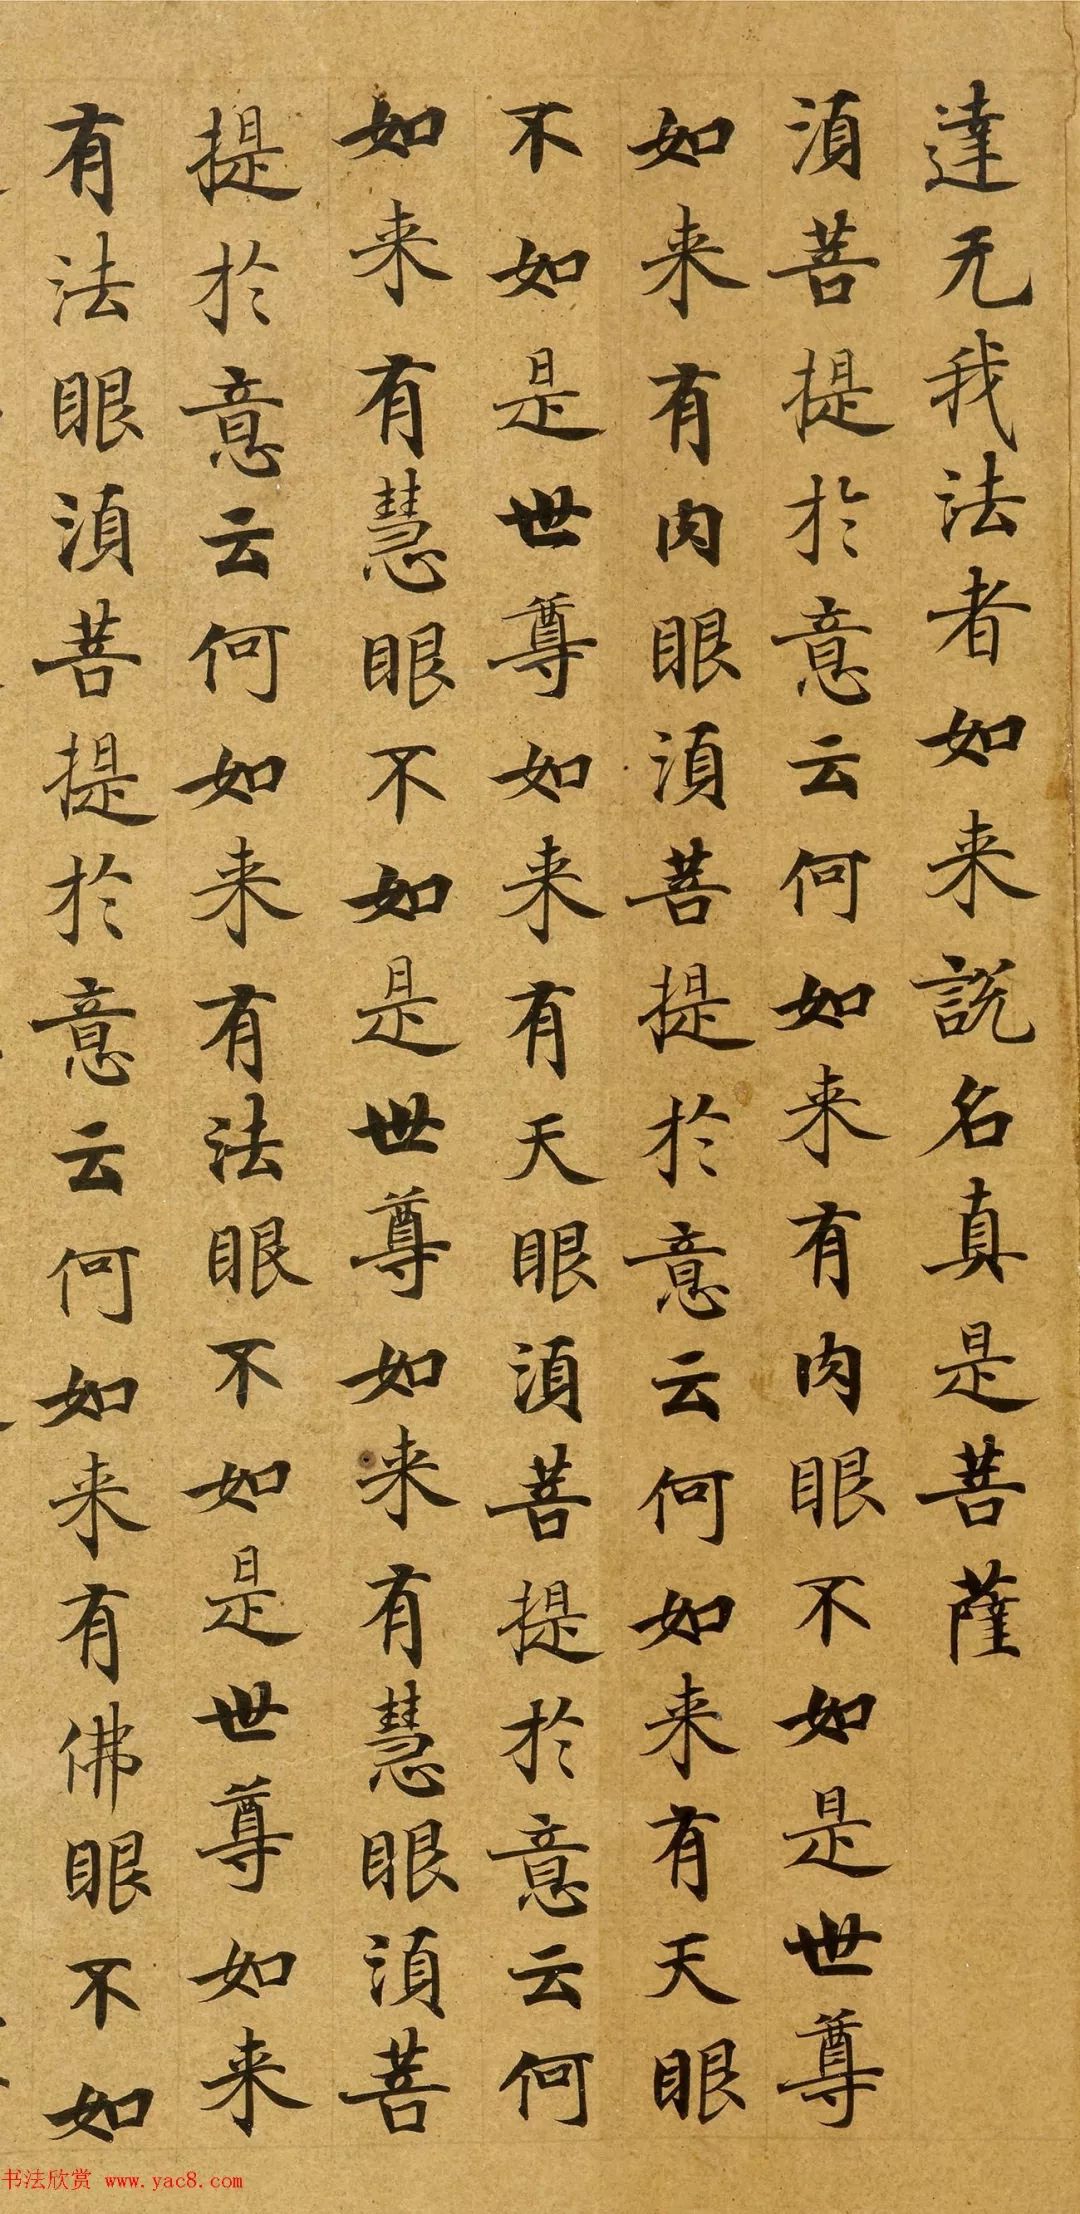 達无我法者如来說名真是菩薩
湏菩提於意云何如来有肉眼不如是世尊
如来有肉眼湏菩提於意云何如来有天眼
不如是世尊如来有天眼湏菩提於意云何
如来有慧眼不如是世尊如来有慧眼湏菩
提於意云何如来有法眼不如是世尊如来
有法眼湏菩提於意云何如来有佛眼不如
书法欣赏 www.yac8.com